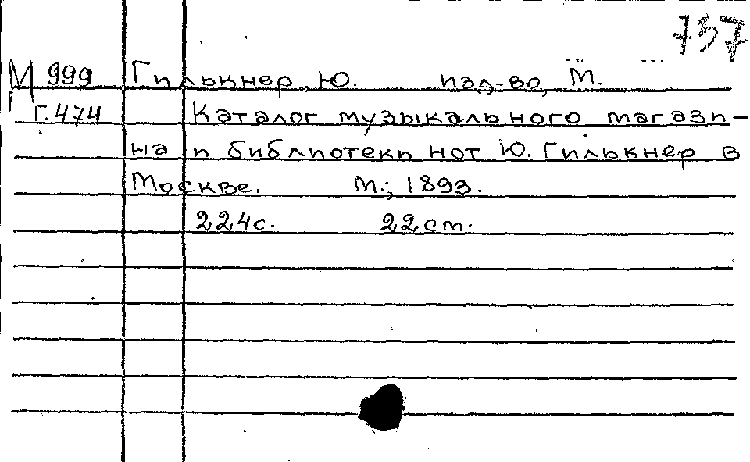 737
М 999 Гилькнер, Ю. изд-во, М.
Г.474 Каталог музыкального магази-
на и библиотеки нот Ю. Гилькнер в
Москве. М.; 1893.
224с. 22см.